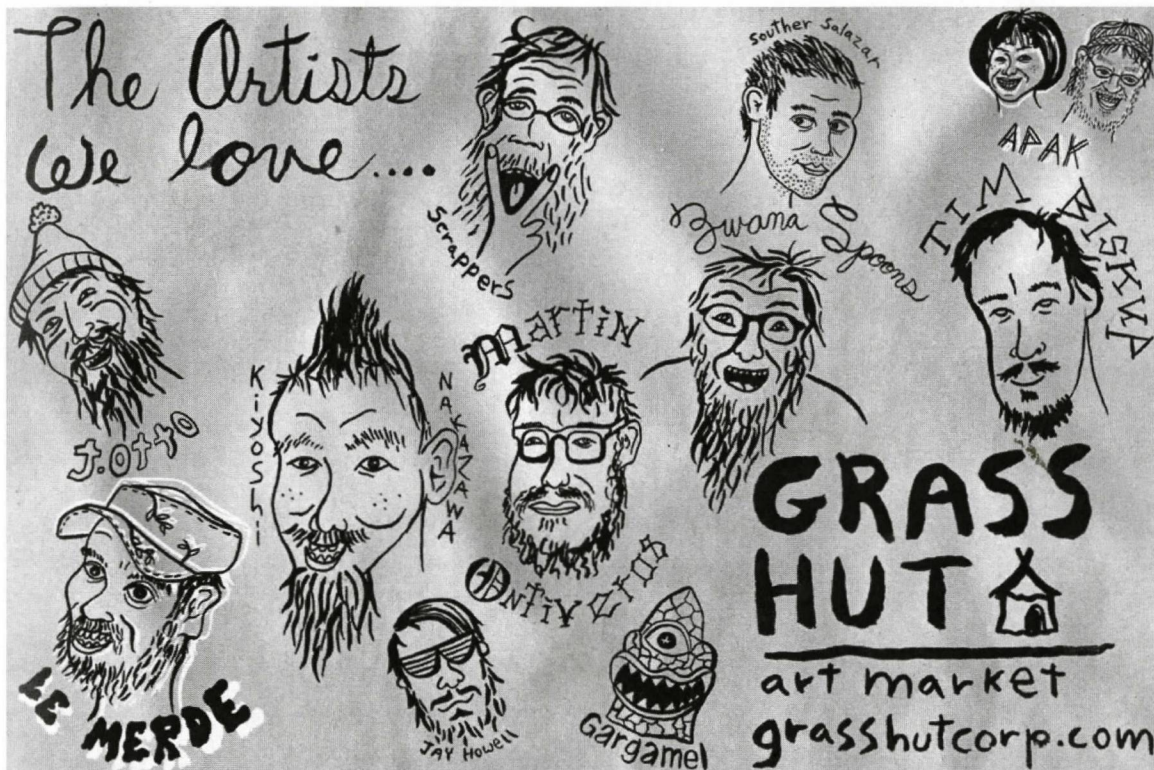 The Artists
we love....
Scrappers
Souther Salazar
APAK
Bwana Spoons
TIM BISKUP
J.otto
Kiyoshi
NAKAZAWA
Martin
Ontiveros
LE MERDE
JAY HOWEll
Gargamel
GRASS
HUT
art market
grasshutcorp.com